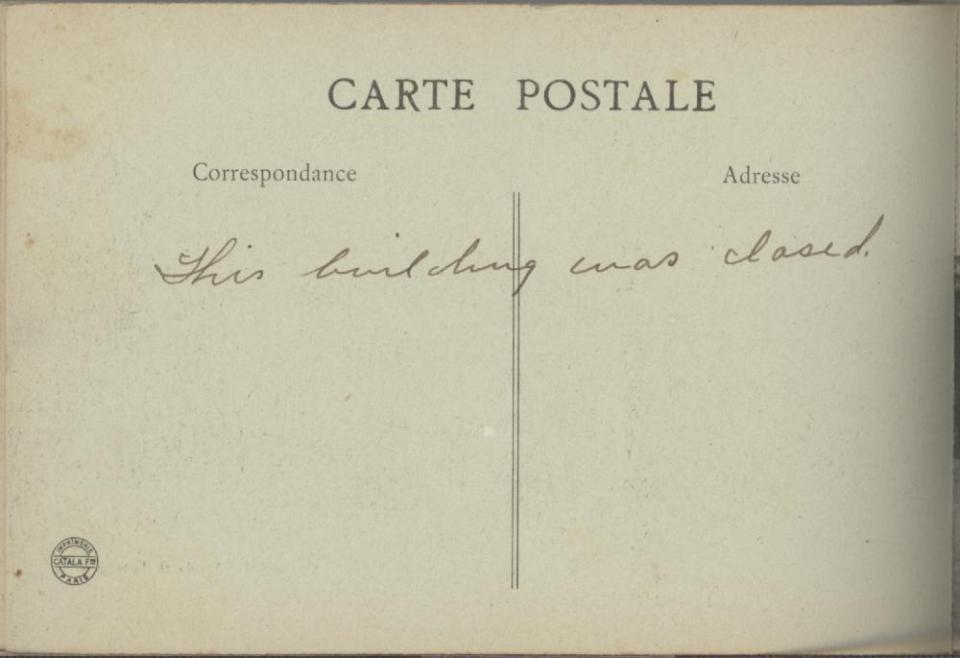 CARTE POSTALE
Correspondance
Adresse
This building was closed.
IMPRIMERIE
CATALA FRES
PARIS